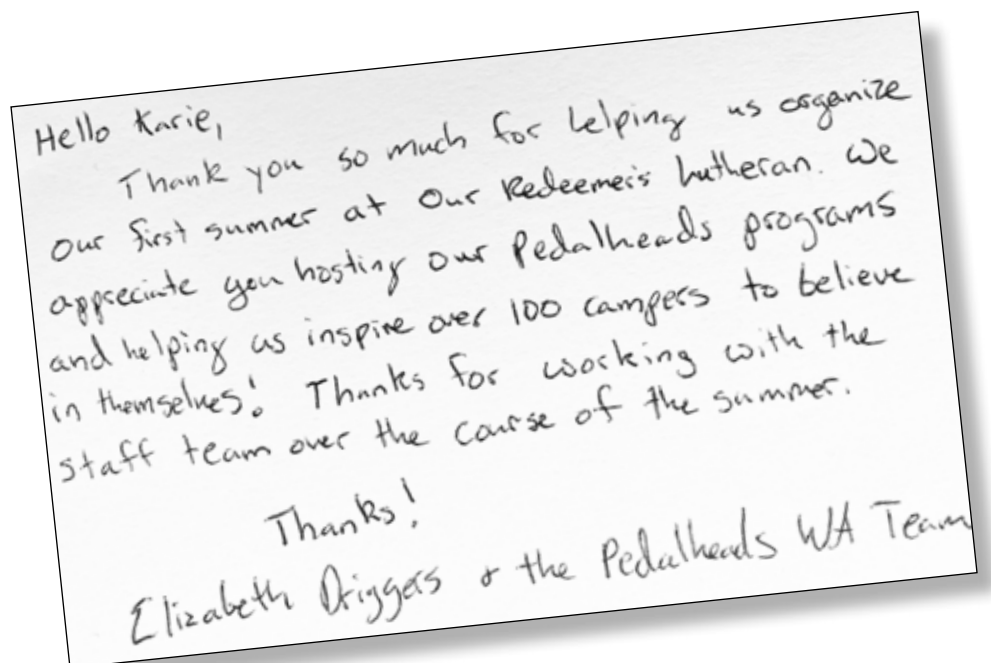 Hello Karie,
Thank you so much for helping us organize
our first summer at Our Redeemer's Lutheran. We
appreciate you hosting our Pedalheads programs
and helping us inspire over 100 campers to believe
in themselves! Thanks for working with the
staff team over the course of the summer.
Thanks!
Elizabeth Driggers & the Pedalheads WA Team